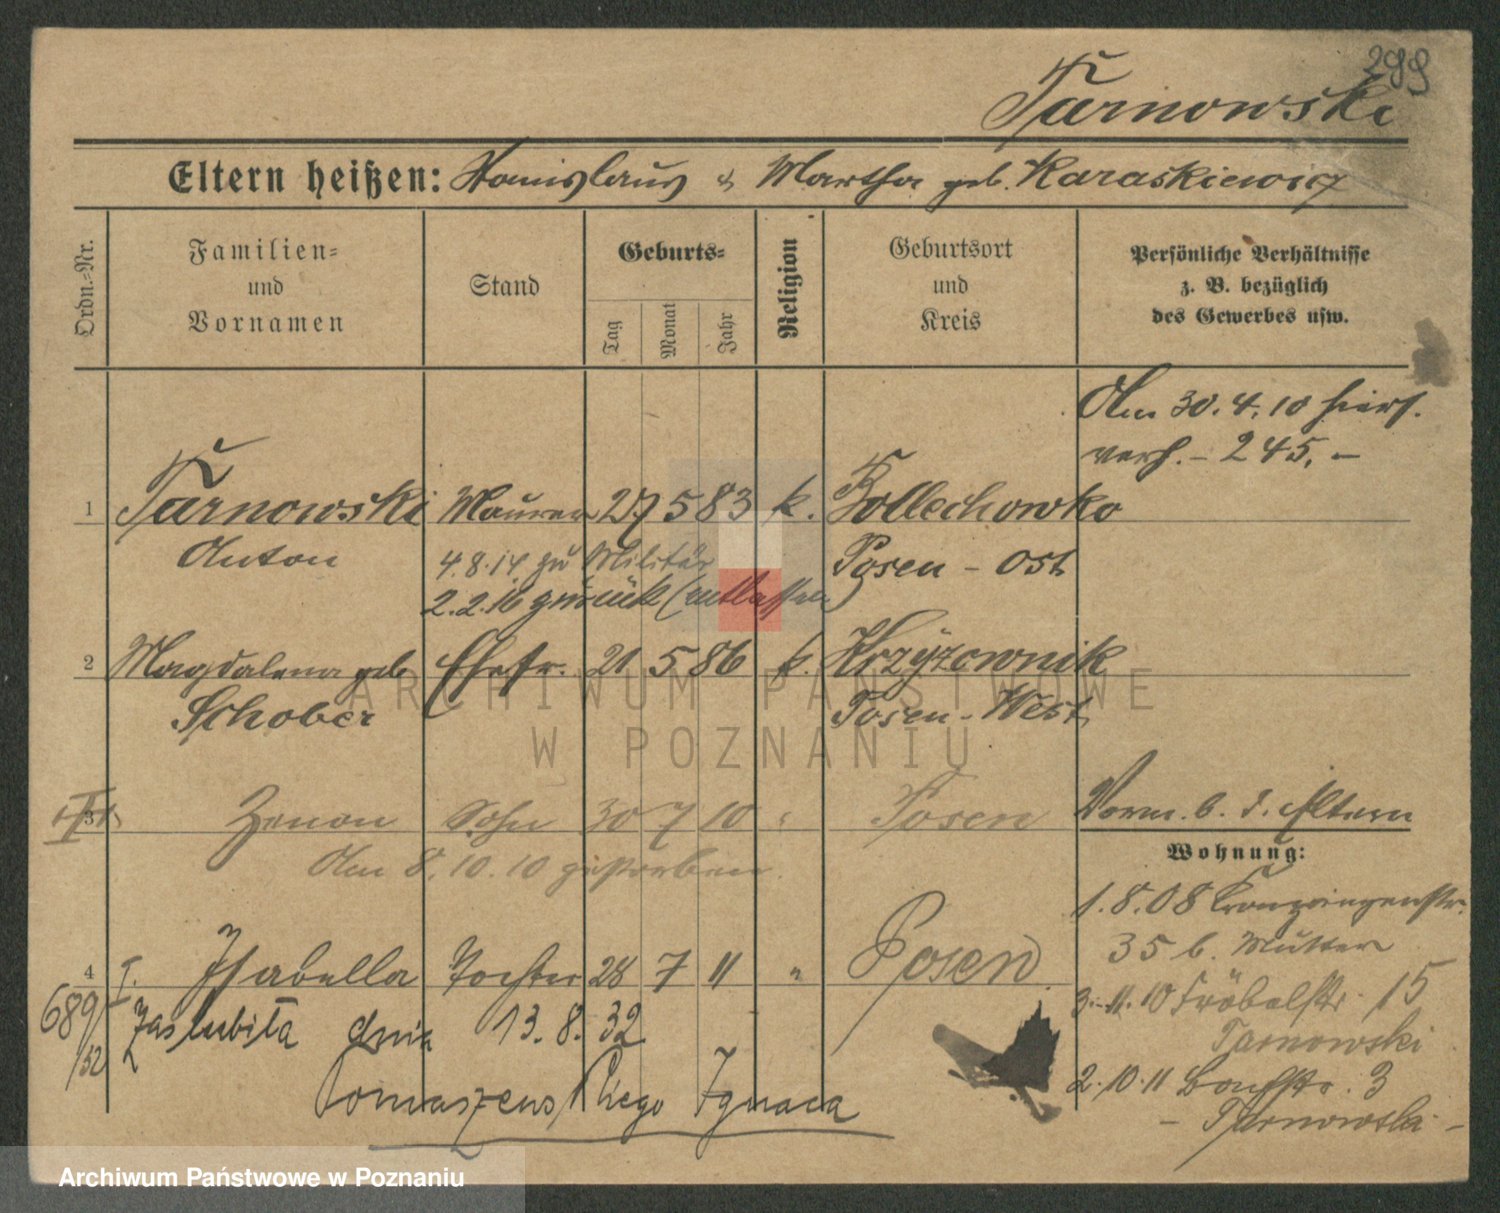 299
Tarnowski
Eltern heißen: Stanislaus & Martha geb. Karaskiewicz
Ordn.-Nr.
Familien-
und
Vornamen
Stand
Geburts-
Tag
Monat
Jahr
Religion
Geburtsort
und
Kreis
Persönliche Verhältnisse
z. B. bezüglich
des Gewerbes usw.
Am 30.4.10 hier
verh. - 245. -
1 Tarnowski Maurer 27 5 83 k. Bollechowko
Anton Posen - Ost
4.8.14 zu Militär
2.2.16 zurück (entlassen)
2 Magdalena geb Ehefr. 21 5 86 k. Krzyzownik
Schober Posen - West
3 Zenon Sohn 30 7 10 " Posen
Am 8.10.10 gestorben.
Vorm. b. d. Eltern
Wohnung:
1.8.08 Kronprinzenstr.
35 b. Mutter
3.11.10 Fröbelstr. 15
Tarnowski
2.10.11 Bachstr. 3
- Tarnowski -
4 I. Isabella Tochter 28 7 11 " Posen
689/32 Zaślubiła dnia 13.8.32
Tomaszewskiego Ignaca
ARCHIWUM PAŃSTWOWE
W POZNANIU
Archiwum Państwowe w Poznaniu